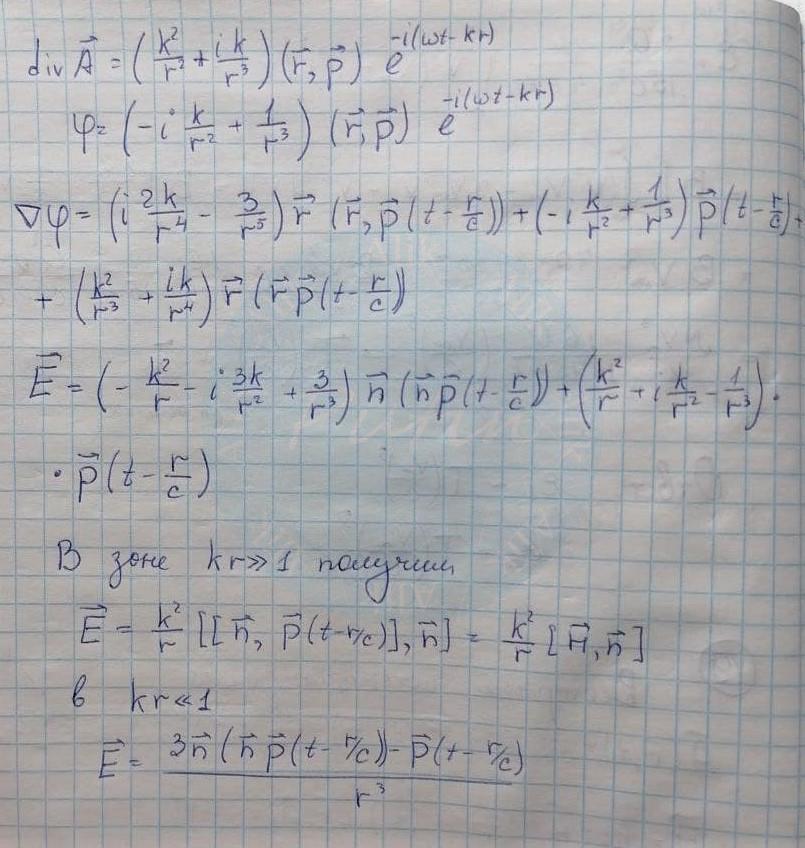 div A⃗ = (k²/r² + ik/r³) (r⃗, p⃗) e^{-i(ωt-kr)}
φ = (-i k/r² + 1/r³) (r⃗, p⃗) e^{-i(ωt-kr)}
∇φ = (i 2k/r⁴ - 3/r⁵) r⃗ (r⃗, p⃗(t - r/c)) + (-i k/r² + 1/r³) p⃗(t - r/c) +
+ (k²/r³ + ik/r⁴) r⃗ (r⃗ p⃗(t - r/c))
E⃗ = (- k²/r - i 3k/r² + 3/r³) n⃗ (n⃗ p⃗(t - r/c)) + (k²/r + i k/r² - 1/r³) ·
· p⃗(t - r/c)
В зоне kr ≫ 1 получим
E⃗ = k²/r [[n⃗, p⃗(t-r/c)], n⃗] = k²/r [H⃗, n⃗]
в kr ≪ 1
E⃗ = (3n⃗(n⃗ p⃗(t - r/c)) - p⃗(t - r/c))/r³